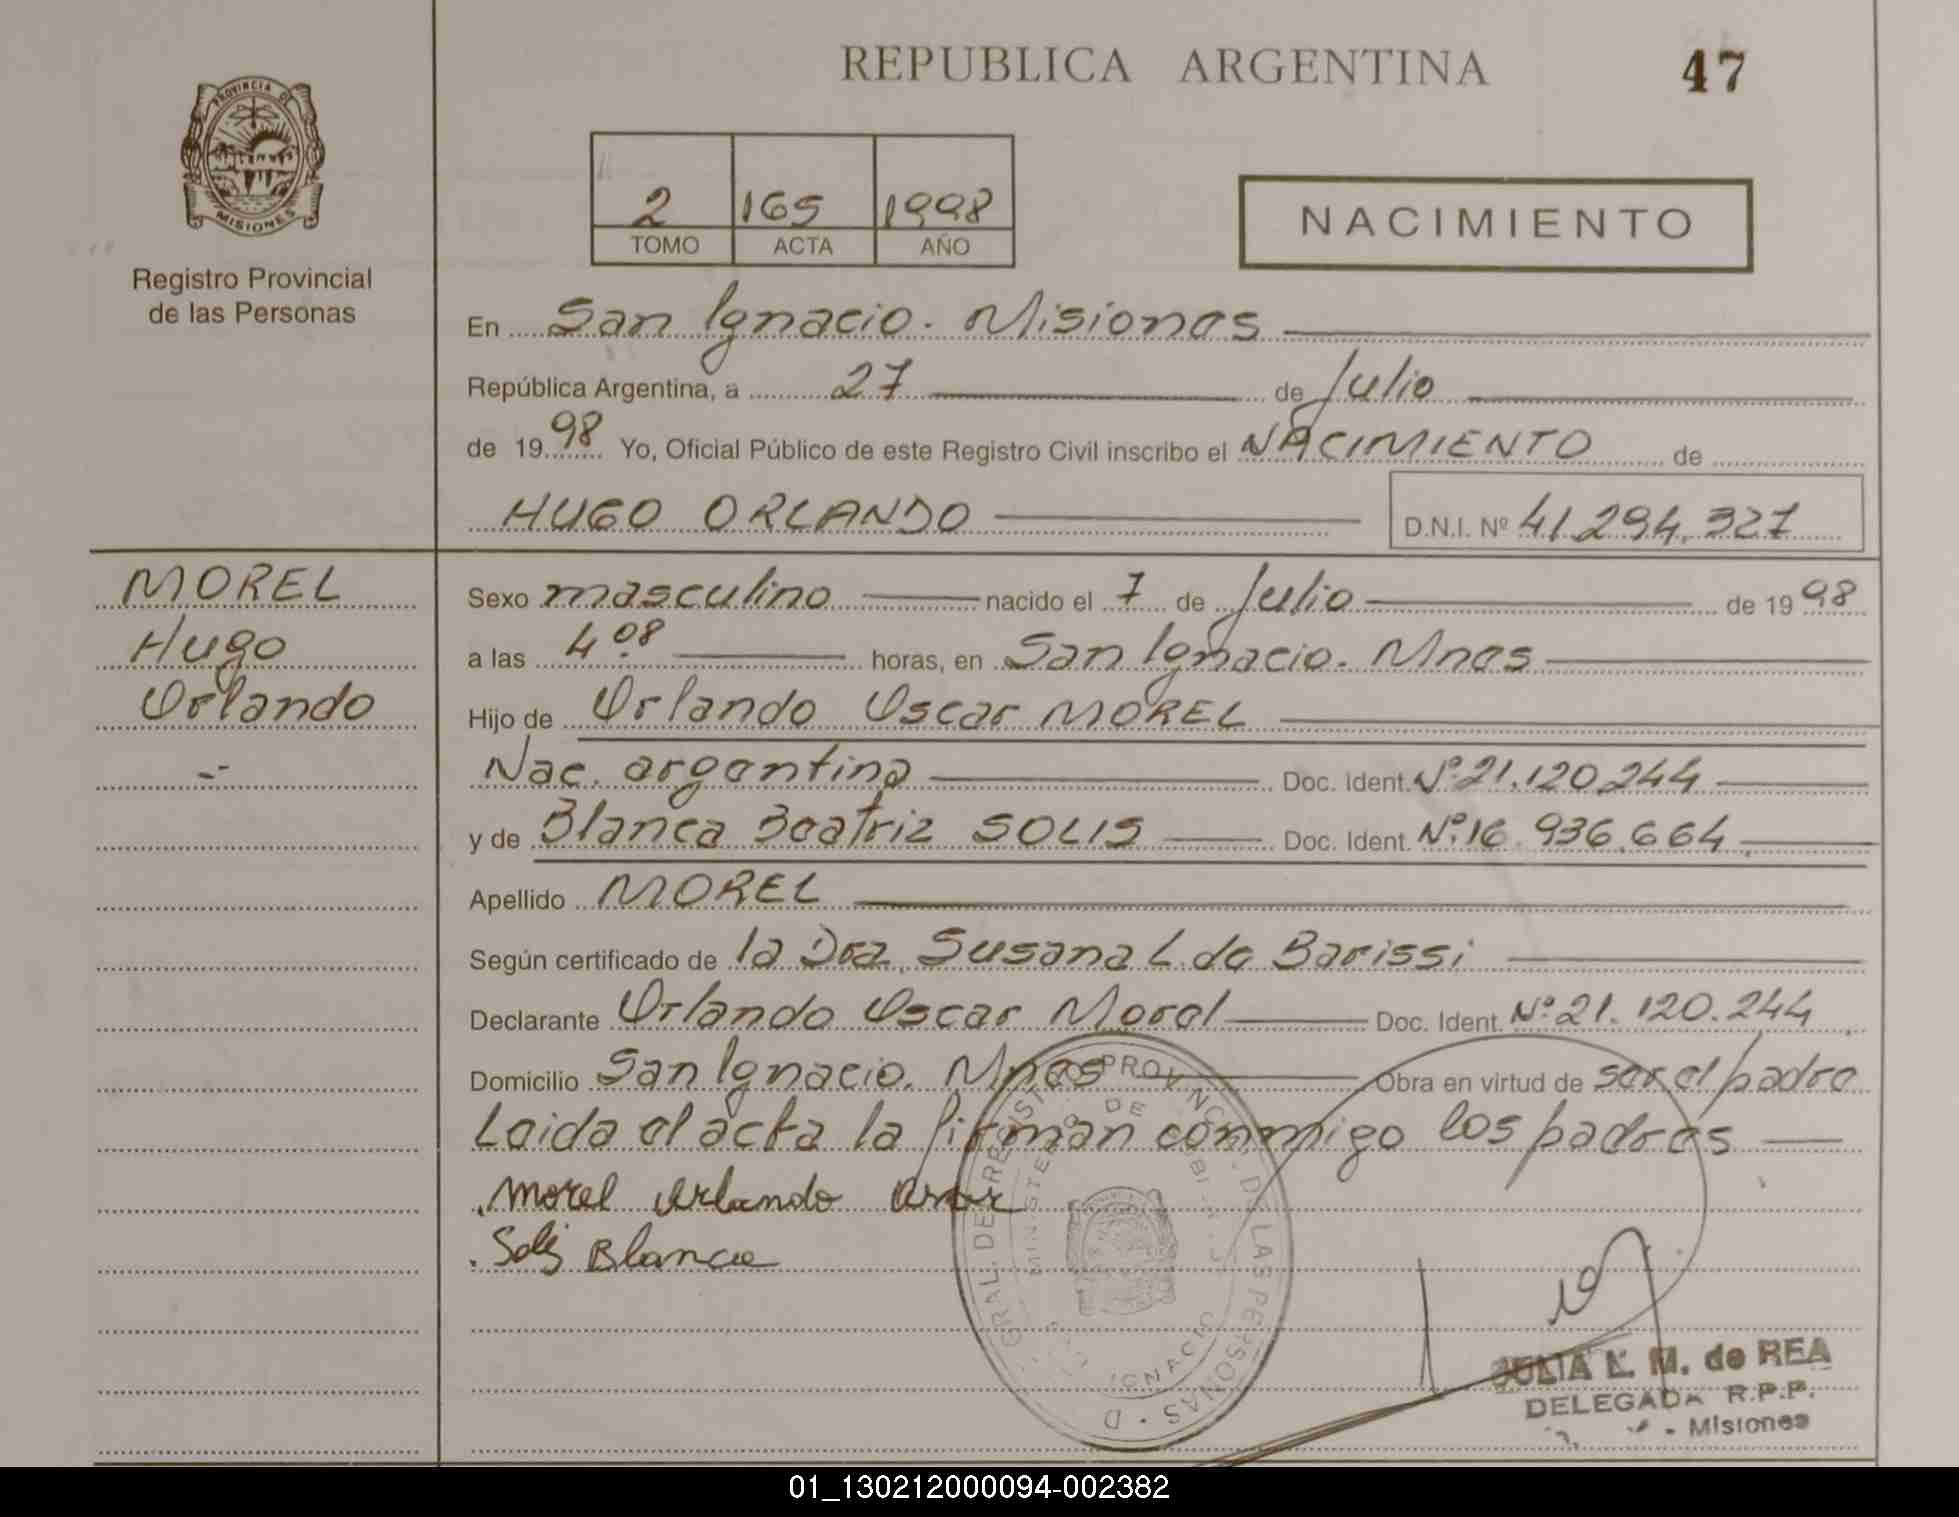 REPUBLICA ARGENTINA
47
PROVINCIA DE
MISIONES
Registro Provincial
de las Personas
2 165 1998
TOMO ACTA AÑO
NACIMIENTO
En San Ignacio. Misiones
República Argentina, a 27 de Julio
de 1998 Yo, Oficial Público de este Registro Civil inscribo el NACIMIENTO de
HUGO ORLANDO D.N.I. Nº 41.294.327
MOREL
Hugo
Orlando
Sexo masculino nacido el 7 de Julio de 1998
a las 4º08 horas, en San Ignacio. Mnes
Hijo de Orlando Oscar MOREL
Nac. argentina Doc. Ident. Nº 21.120.244
y de Blanca Beatriz SOLIS Doc. Ident. Nº 16.936.664
Apellido MOREL
Según certificado de la Dra. Susana L. de Barissi
Declarante Orlando Oscar Morel Doc. Ident. Nº 21.120.244
Domicilio San Ignacio. Mnes Obra en virtud de ser el padre
Leida el acta la firman conmigo los padres
Morel Orlando Oscar
Solis Blanca
JULIA L. M. de REA
DELEGADA R.P.P.
- Misiones
01_130212000094-002382